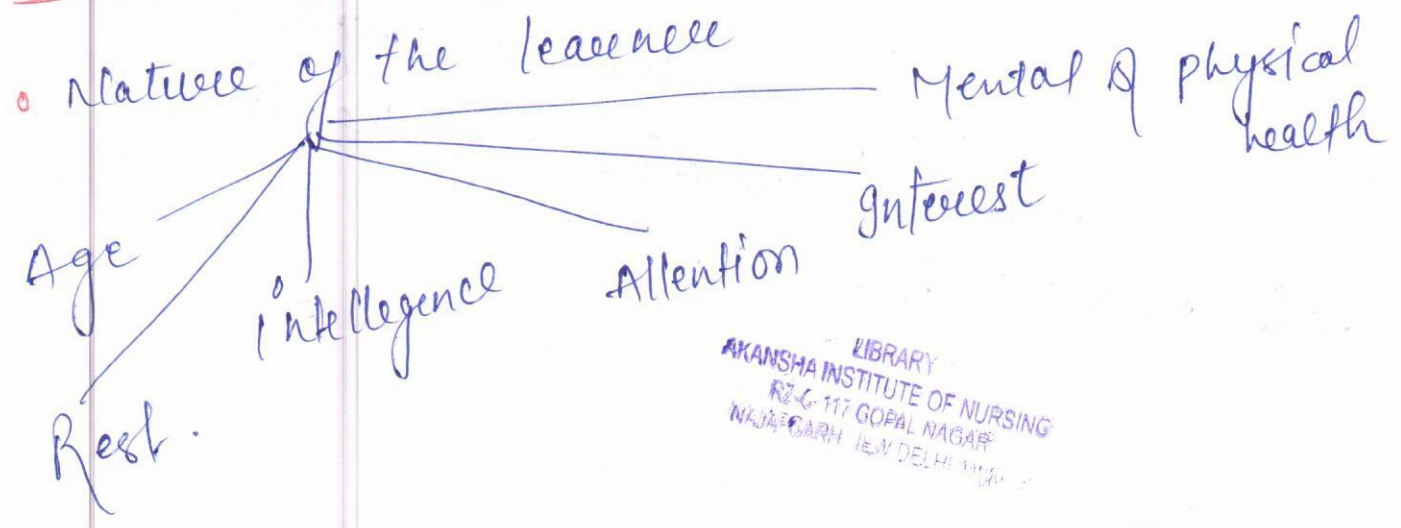 Nature of the learner
Mental & physical
health
Interest
Attention
Age
intellegence
Rest.
LIBRARY
AKANSHA INSTITUTE OF NURSING
RZ-C-117 GOPAL NAGAR
NAJAFGARH NEW DELHI